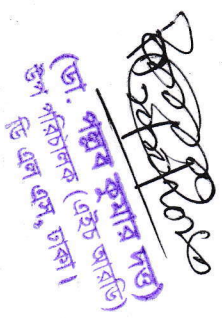 (ডা. পল্লব কুমার দত্ত)
উপ পরিচালক (এইচ আরডি)
ডি এল এস, ঢাকা।